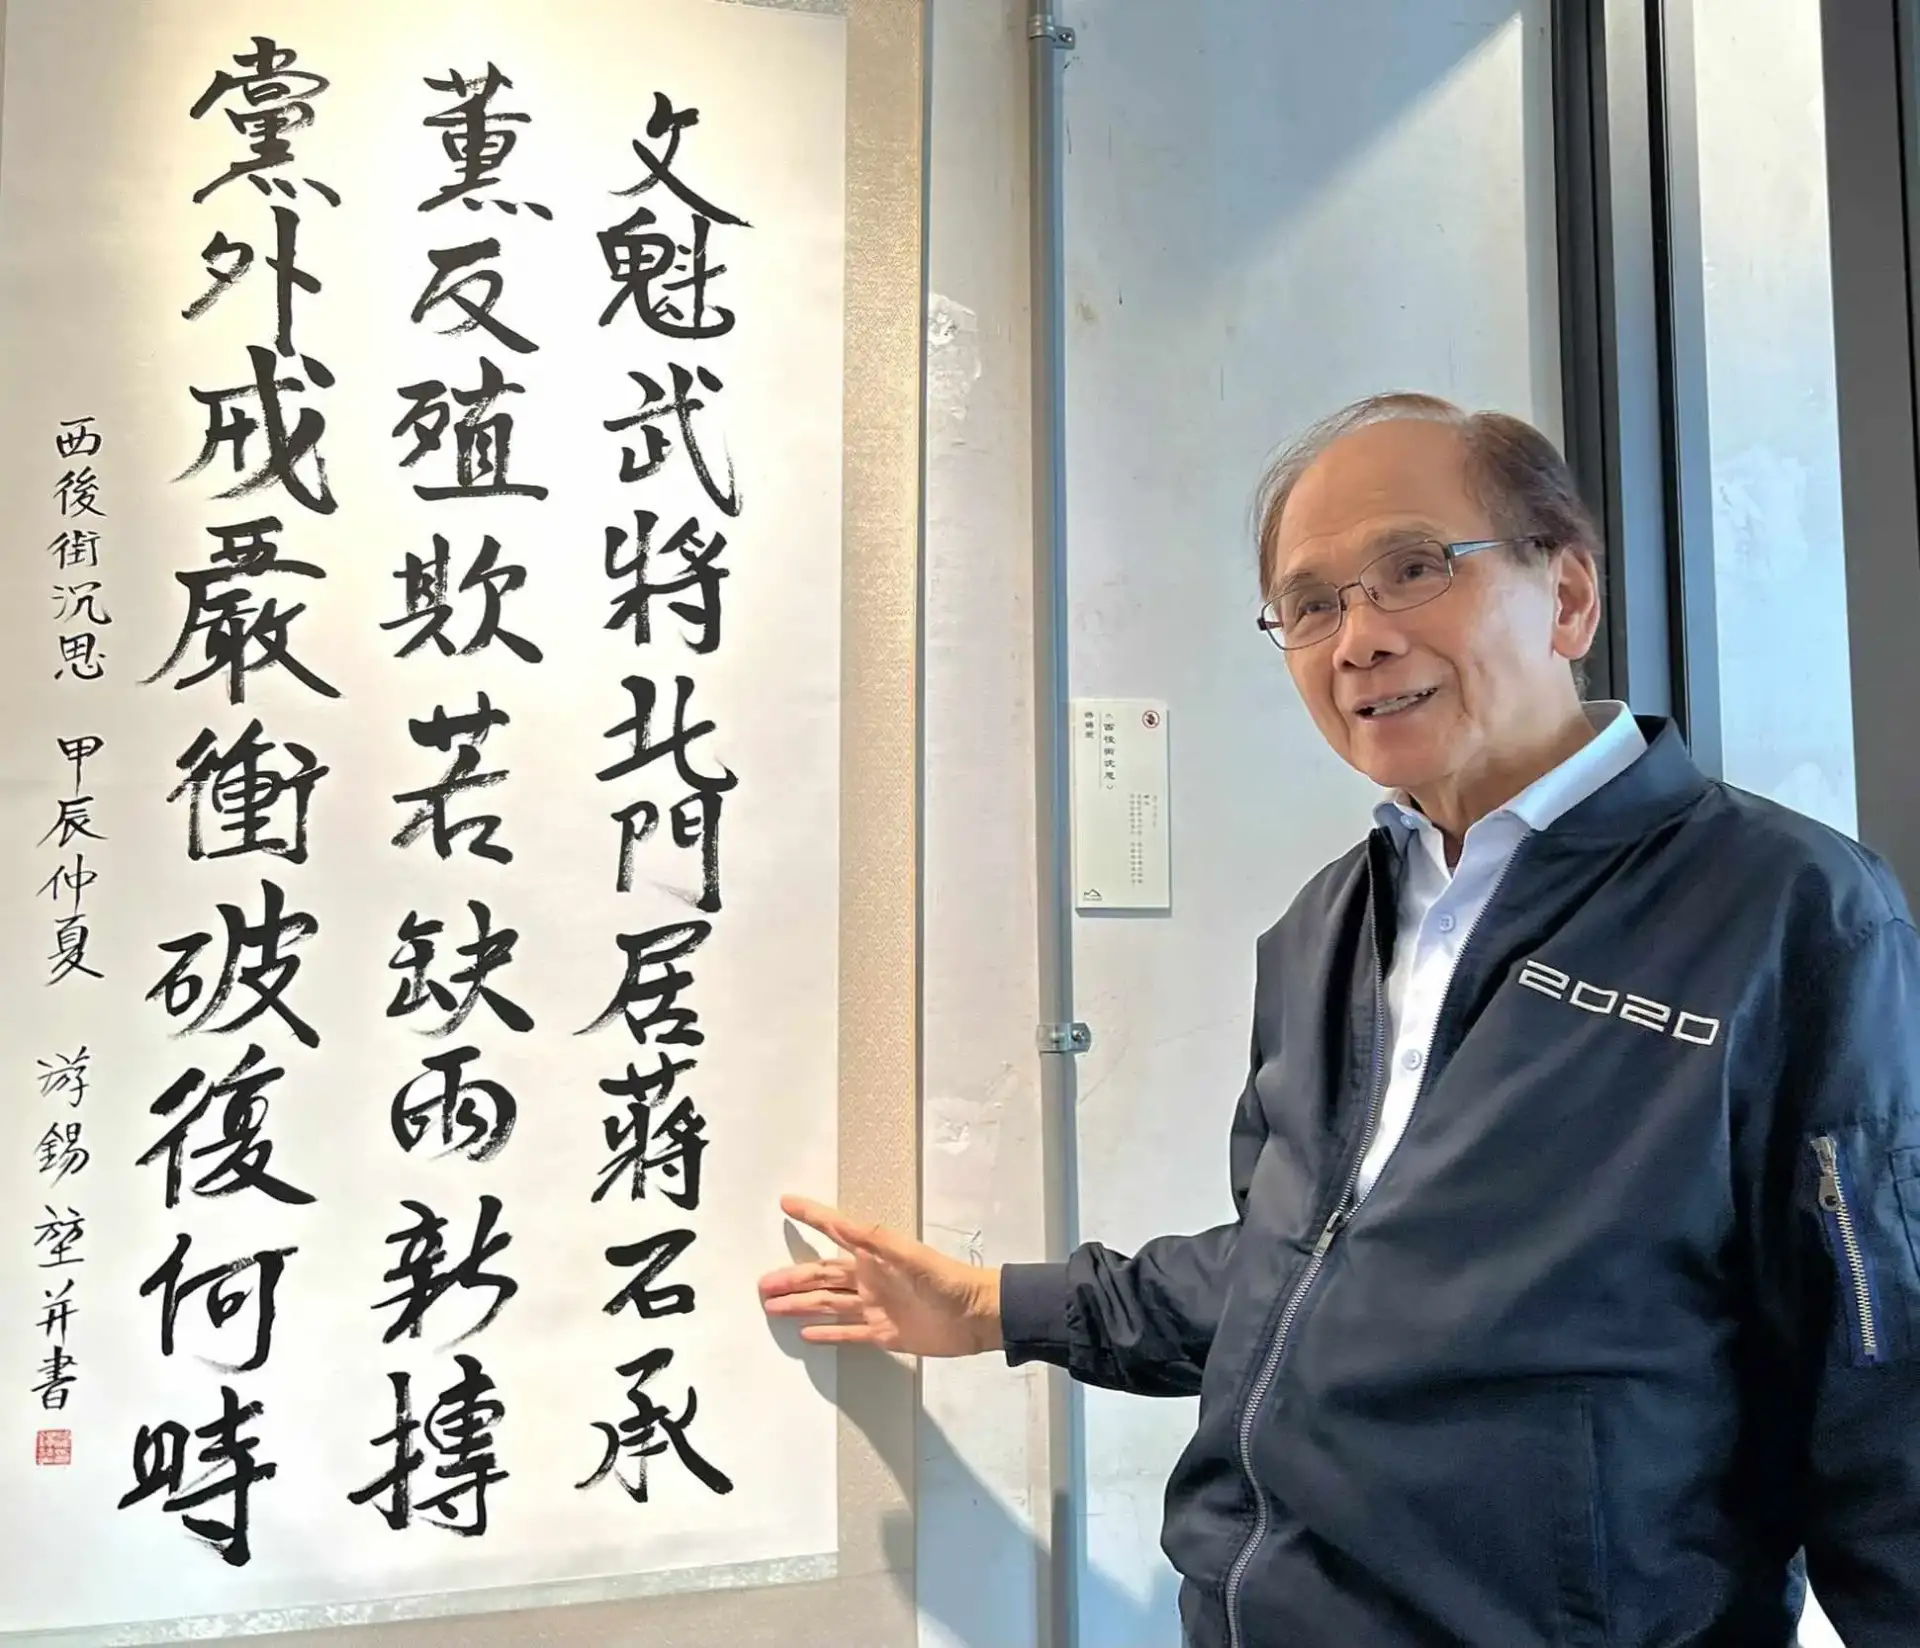 文魁武將北門居蔣石承
薰反殖欺若缺雨新搏
黨外戒嚴衝破復何時
西後街沉思 甲辰仲夏 游錫堃并書
〈西後街沉思〉
游錫堃
2020